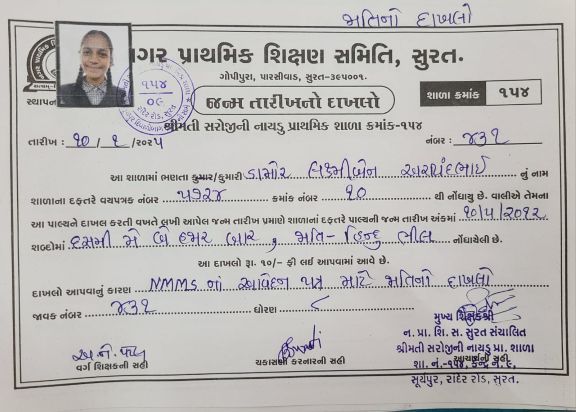 જાતિનો દાખલો
નગર પ્રાથમિક શિક્ષણ સમિતિ, સુરત.
ગોપીપુરા, પારસીવાડ, સુરત-૩૯૫૦૦૧.
સ્થાપના
૧૫૪
૦૯
રાંદેર રોડ, સુરત
જન્મ તારીખનો દાખલો
શાળા ક્રમાંક ૧૫૪
શ્રીમતી સરોજીની નાયડુ પ્રાથમિક શાળા ક્રમાંક-૧૫૪
તારીખ : ૧૦/૧/૨૦૨૫ નંબર : ૪૩૧
આ શાળામાં ભણતા કુમાર/કુમારી ડામોર લક્ષ્મીબેન નું નામ
શાળાના દફતરે વયપત્રક નંબર ૫૭૨૪ ક્રમાંક નંબર ૧૦ થી નોંધાયુ છે. વાલીએ તેમના
આ પાલ્યને દાખલ કરતી વખતે લખી આપેલ જન્મ તારીખ પ્રમાણે શાળાના દફતરે પાલ્યની જન્મ તારીખ અંકમાં ૧૦/૫/૨૦૧૨
શબ્દોમાં દસમી મે બે હજાર બાર, જાતિ- હિન્દુ ભીલ નોંધાયેલી છે.
આ દાખલો રૂા. ૧૦/- ફી લઈ આપવામાં આવે છે.
દાખલો આપવાનું કારણ NMMS નાં આવેદન પત્ર માટે જાતિનો દાખલો
જાવક નંબર ૪૩૧ ધોરણ ૮
મુખ્ય શિક્ષકશ્રી
ન. પ્રા. શિ. સ. સુરત સંચાલિત
શ્રીમતી સરોજીની નાયડુ પ્રા. શાળા
વર્ગ શિક્ષકની સહી ચકાસણી કરનારની સહી આચાર્યની સહી
શા. નં.-૧૫૪, કેન્દ્ર નં. ૬,
સૂર્યપુર, રાંદેર રોડ, સુરત.